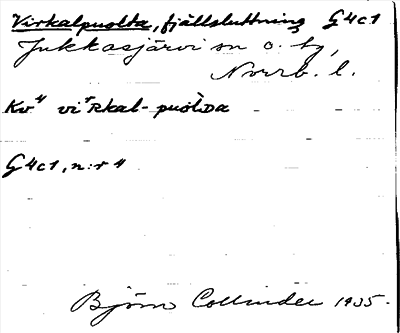 Virkalpuolta, fjällsluttning G4c1
Jukkasjärvi sn o. by,
Norrb. l.
Kv⁴ vi'rkal-puòlDa
G4c1, n:r 4
Björn Collinder 1935.